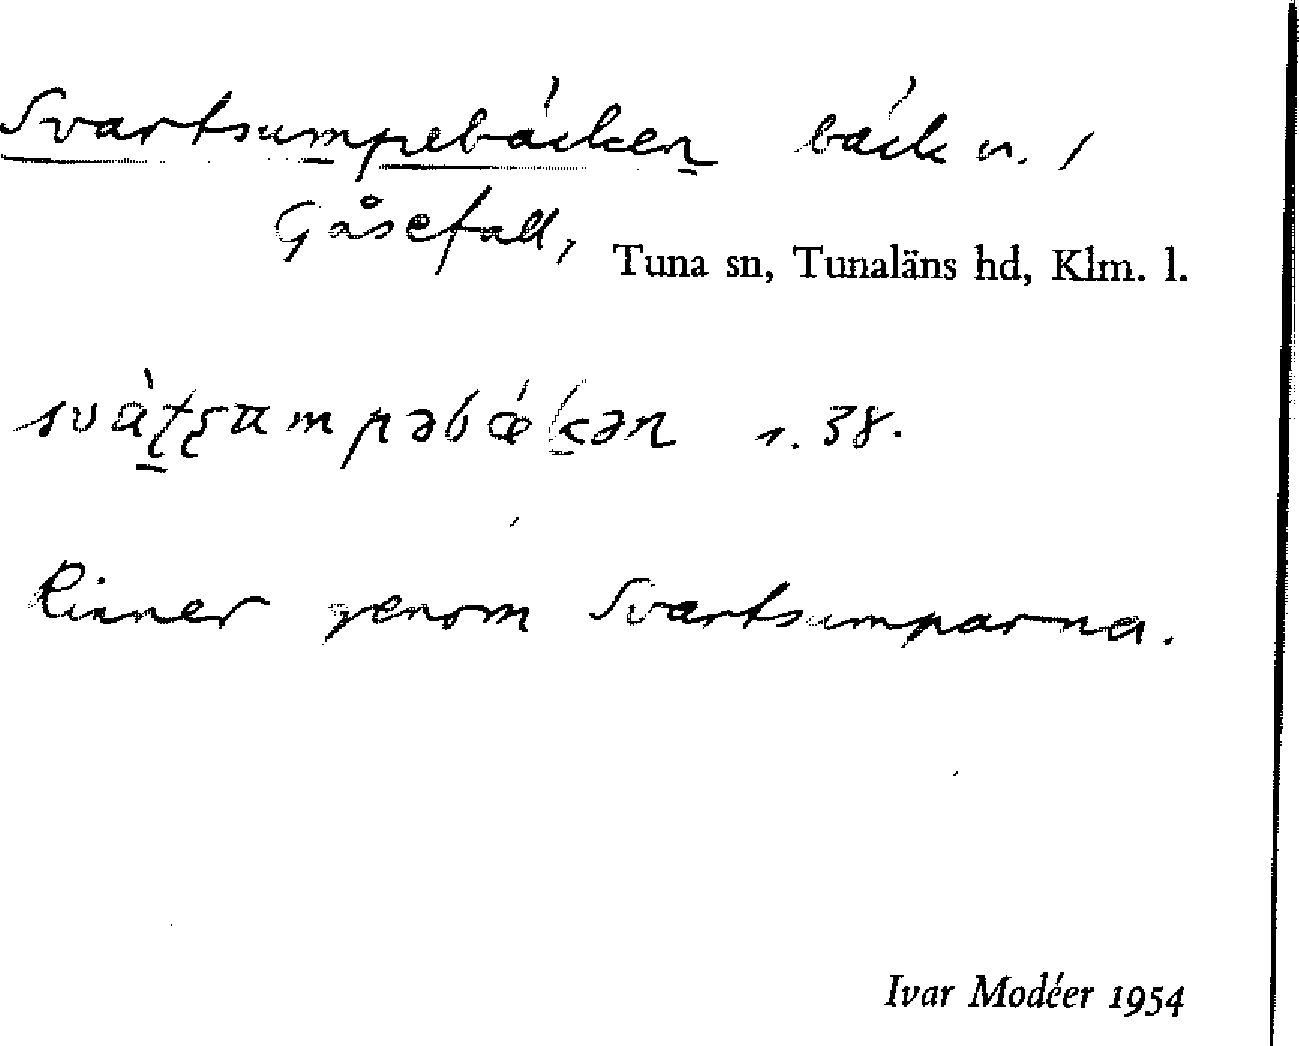 Svartsumpebäcken bäck n. /
Gåsefall,
Tuna sn, Tunaläns hd, Klm. l.
s. 38.
Rinner genom Svartsumparna.
Ivar Modéer 1954